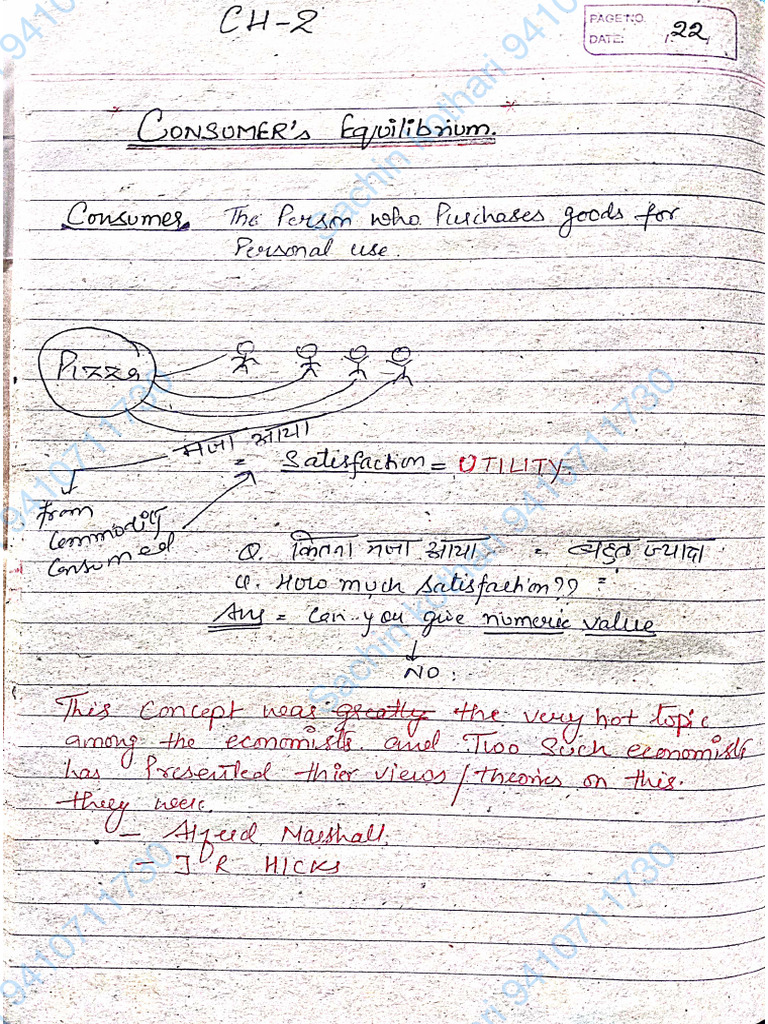 CH-2
PAGE NO. 22
DATE:
CONSUMER's Equilibrium.
Consumer The Person who Purchases goods for
Personal use.
Pizza
मजा आया
= Satisfaction = UTILITY.
from
Commodity
Consumed
Q. कितना मजा आया = बहुत ज्यादा
Q. How much satisfaction?? =
Ans = Can you give numeric value
NO.
This concept was greatly the very hot topic
among the economists and Two such economists
has Presented thier views/theories on this.
they were.
- Alfred Marshall.
- J R HICKS
Sachin Kothari 9410711730